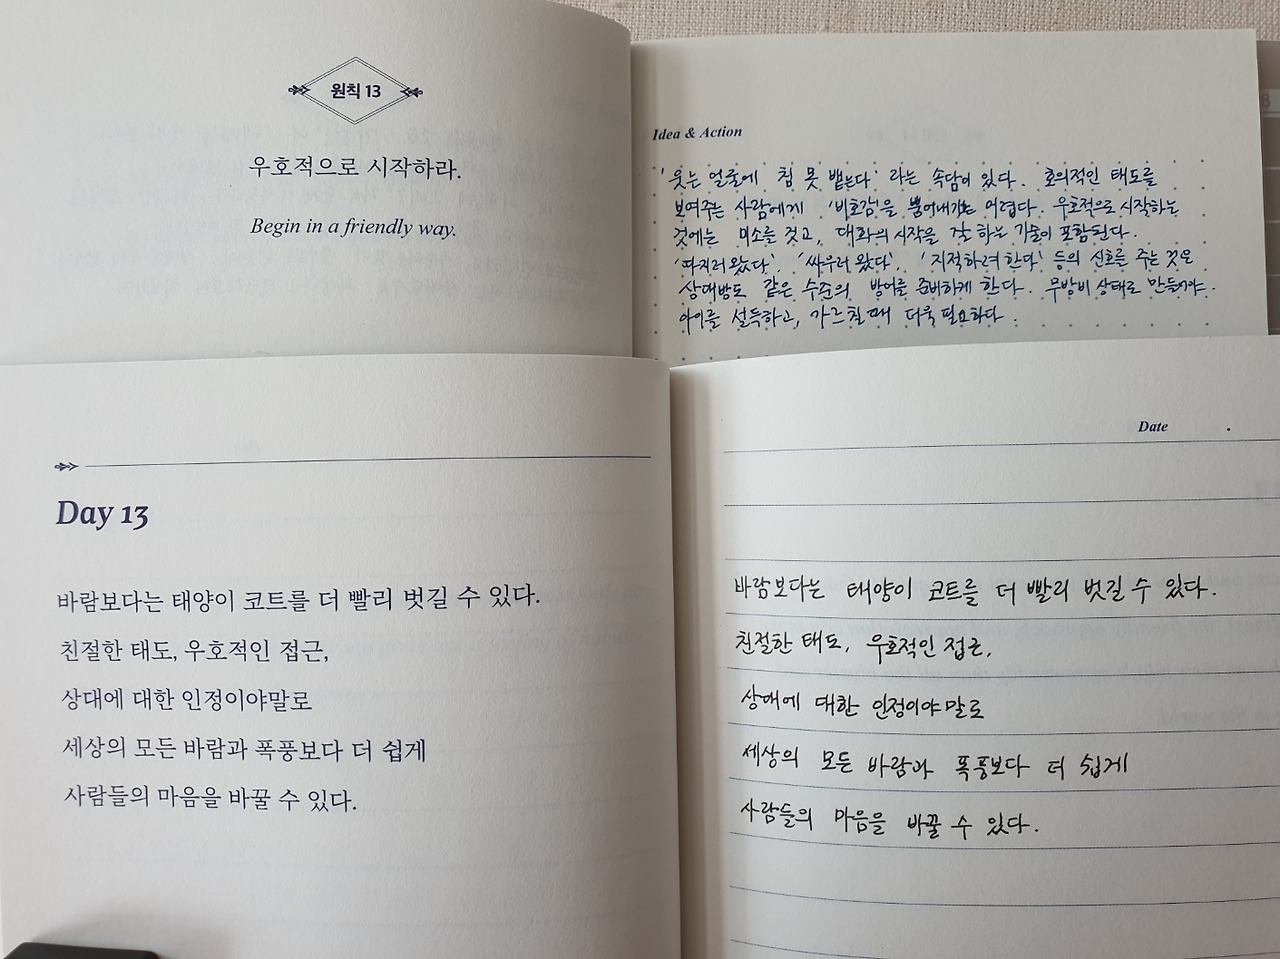 원칙 13
우호적으로 시작하라.
Begin in a friendly way.
Idea & Action
'웃는 얼굴에 침 못 뱉는다' 라는 속담이 있다. 호의적인 태도를
보여주는 사람에게 '비호감'을 뿜어내기는 어렵다. 우호적으로 시작하는
것에는 미소를 짓고, 대화의 시작을 잘 하는 기술이 포함된다.
'따지러 왔다', '싸우러 왔다', '지적하려 한다' 등의 신호를 주는 것은
상대방도 같은 수준의 방어를 준비하게 한다. 무방비 상태로 만들어야.
아이를 설득하고, 가르칠 때 더욱 필요하다.
Day 13
바람보다는 태양이 코트를 더 빨리 벗길 수 있다.
친절한 태도, 우호적인 접근,
상대에 대한 인정이야말로
세상의 모든 바람과 폭풍보다 더 쉽게
사람들의 마음을 바꿀 수 있다.
Date .
바람보다는 태양이 코트를 더 빨리 벗길 수 있다.
친절한 태도, 우호적인 접근,
상대에 대한 인정이야말로
세상의 모든 바람과 폭풍보다 더 쉽게
사람들의 마음을 바꿀 수 있다.